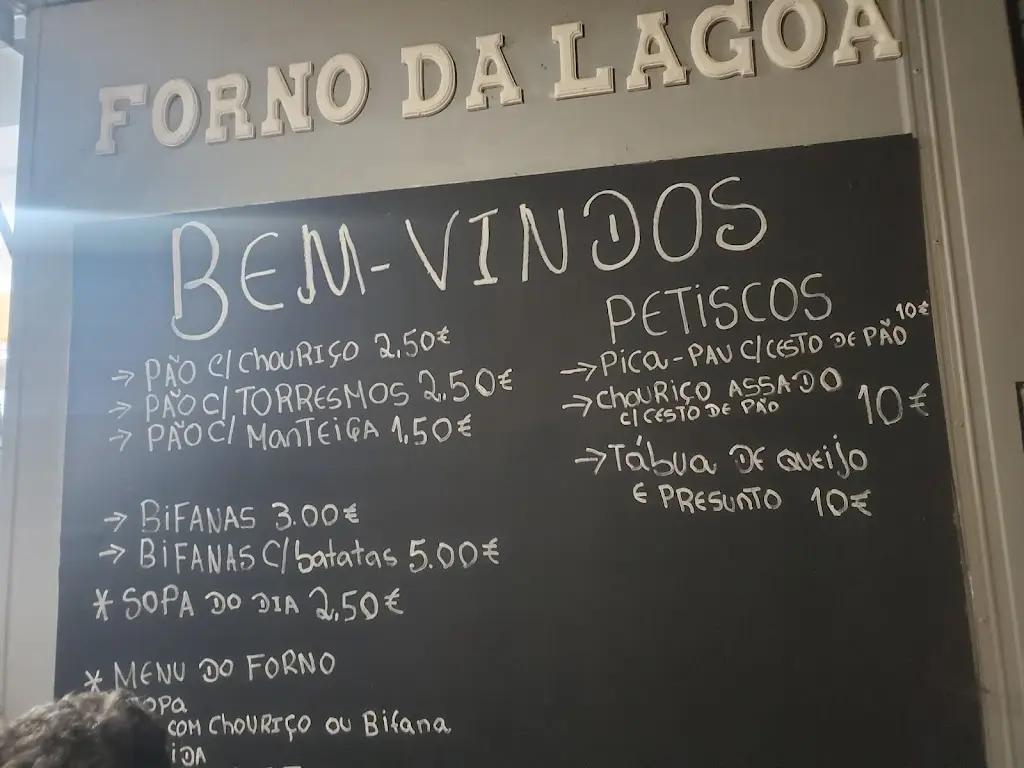 FORNO DA LAGOA
BEM-VINDOS
→ PÃO C/ CHOURIÇO 2,50€
→ PÃO C/ TORRESMOS 2,50€
→ PÃO C/ MANTEIGA 1,50€
→ BIFANAS 3.00€
→ BIFANAS C/ batatas 5.00€
* SOPA DO DIA 2,50€
* MENU DO FORNO
COM CHOURIÇO OU Bifana
PETISCOS
→ PICA-PAU C/ CESTO DE PÃO 10€
→ CHOURIÇO ASSADO
C/ CESTO DE PÃO 10€
→ Tábua DE QUEIJO
E PRESUNTO 10€